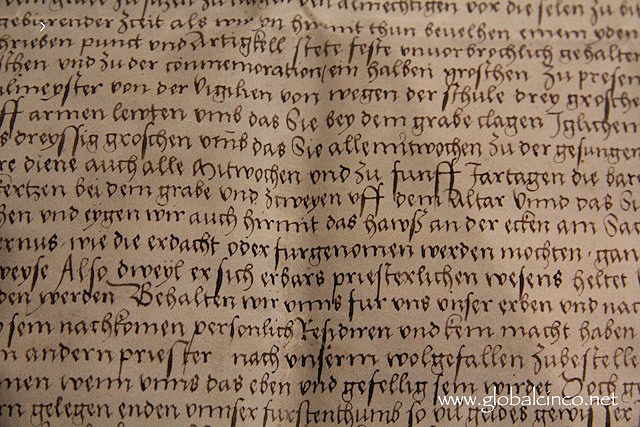 almechtigen vor die selen zu bi
gebürender zceit als wir yn hirmit thun bevelhen einem yden
hrieben punct vnd Artigkell stete feste vnvorbrochlich gehalten
schen vnd zu der commemoration ein halben groschen zu presen
almeyster von der vigilien von wegen der schule drey grosche
ff armen lewten vmb das Sie bey dem grabe clagen Iglichen
s dreyssig groschen vmb das Sie alle mitwochen zu der gesungen
re diene auch alle Mitwochen vnd zu funff Jartagen die bare
kertzen bei dem grabe vnd zweyen vff dem Altar vnnd das Si
hen vnd eygen wir auch hirmit das hawß an der ecken am Sac
ernus wie die erdacht oder furgenomen werden mochten gan
weyse Also dweyl er sich erbars priesterlichen wesens heltet
den werden Behalten wir vnns fur vns vnser erben vnd nac
o sein nachkomen personlich Residiren vnd kein macht haben
n andern priester nach vnserm wolgefallen zubestelle
men wenn vnns das eben vnd gefellig sein wirdet Doch g
rn gelegen enden vnnser furstenthumb so vil geldes gewisser
www.globalcinco.net